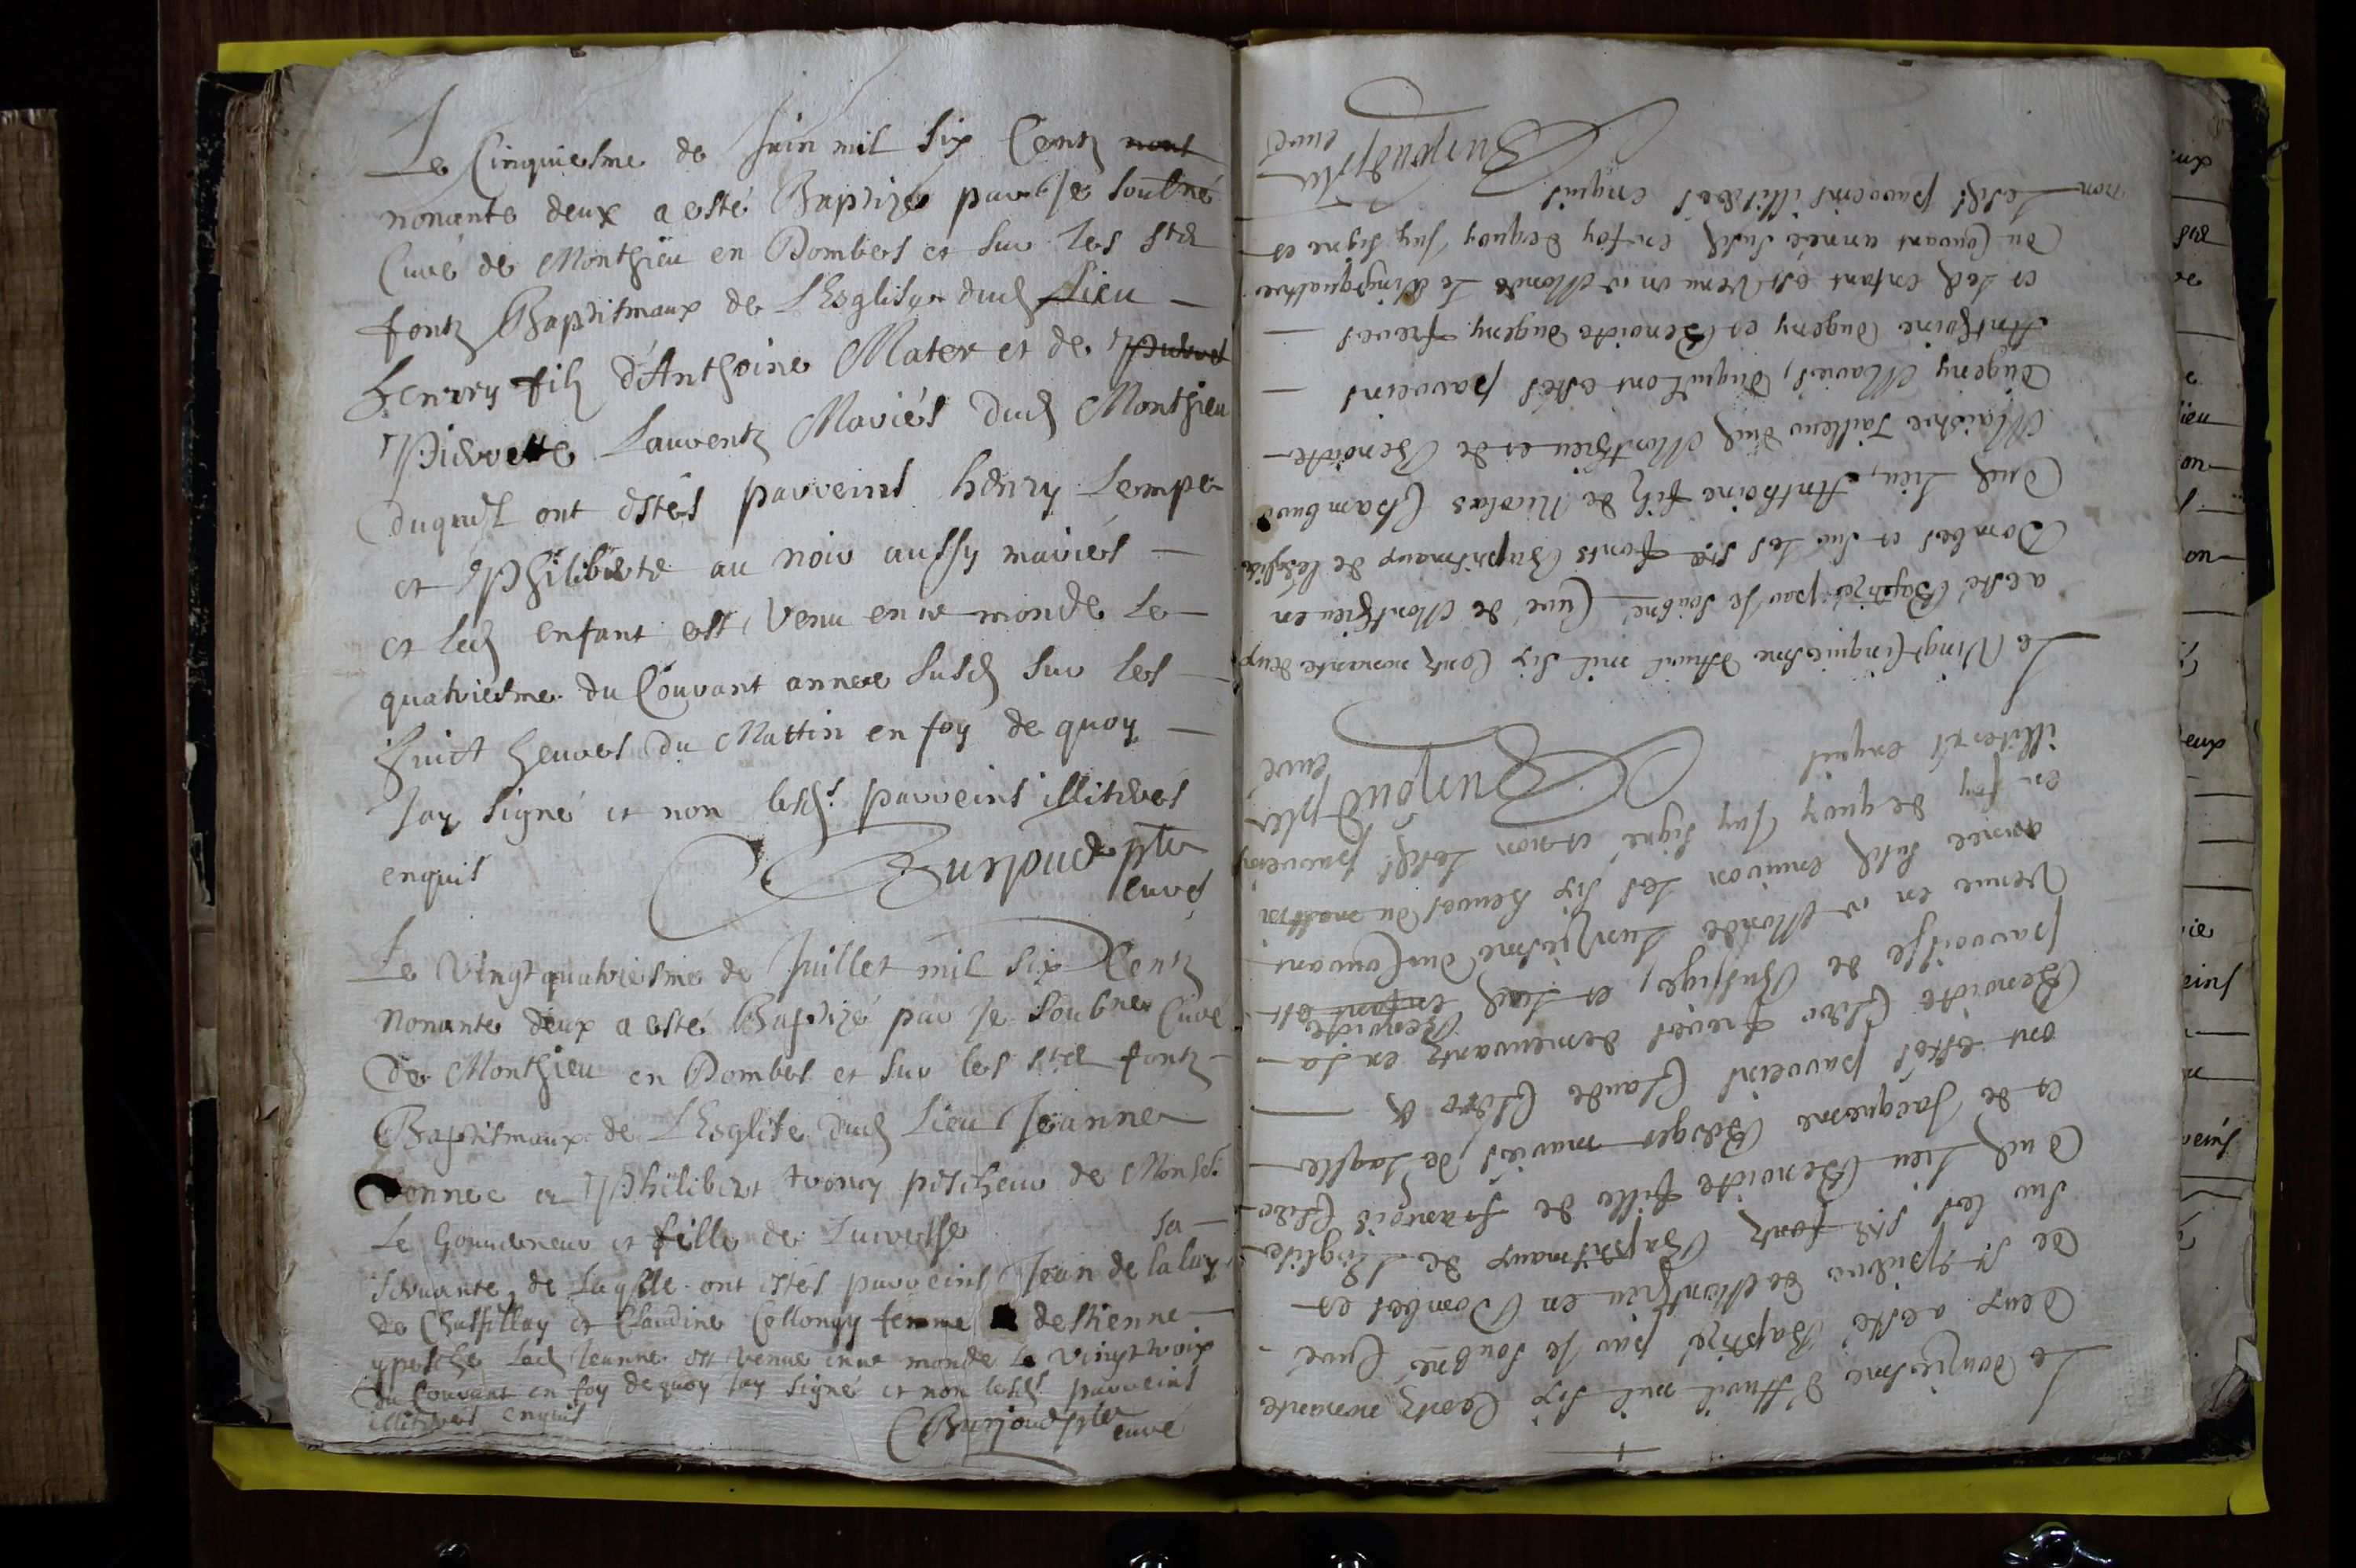 Le Cinquiesme de Juin mil six Centz nont
nonante deux a esté Baptizé par Je soubné
Curé de Monthieu en Dombes et sur les stes
fontz Baptismaux de LEsglise dud Lieu
henrry filz d'Anthoine Mater et de
Pierrette Laurentz Mariés dud Monthieu
duquel ont estés parreins henry Lempe
et Philiberte au noir aussy mariés
et led enfant est venu en ce monde le
quatriesme du Couvant annee susd sur les
huict heures du Mattin en foy de quoy
Jay signé et non lesds parreins illiterés
enquis Burjoud ptre
curé
Le vingtquatriesme de Juillet mil six Centz
nonante deux a esté Baptizé par Je soubné Curé
de Monthieu en Dombes et sur les stes fontz
Baptismaux de LEsglise dud Lieu Jeanne
donnee a Philibert troncy pescheur de Monsr
Le Gouverneur et fille de sa
servante, de laqlle ont estés parreins Jean de lalay
de Chassillay et Claudine Collongy femme destienne
ypesche lad Jeanne est venue en ce monde le vingt troix
du Couvant en foy dequoy Jay signé et non lesds parreins
illiterés enquis Burjoud ptre
curé
Le douziesme d'Avril mil six Centz nonante
deux a esté Baptizé par Je soubné Curé
de St pierre de Monthieu en Dombes et
sur les stes fontz Baptismaux de LEsglise
dud Lieu Benoiste fille de françois Clerc
et de Jacquesme Berger mariés, de laqlle
ont estés parreins Claude Clerc &
Benoiste Clerc freres demeurantz en la
parroisse de Bussige, et lad enfant Benoiste est
venue en ce Monde Lunziesme du Couvant
année susd environ les six heures du mattin
en foy dequoy Jay signé et non lesds parreins
illiterés enquis
Burjoud ptre
curé
Le Vingt Cinquiesme d'Avril mil six Centz nonante deux
a esté Baptizé par Je soubné Curé de Monthieu en
Dombes et sur les stes fonts Baptismaux de lesglise
dud Lieu, Anthoine filz de Nicolas Chambur
Maistre Tailleur dud Monthieu et de Benoiste
dugeny Mariés, duquel ont estés parreins
Anthoine dugeny et Benoiste dugeny freres
et led enfant est venu en ce Monde le vingquatre
du Couvant année susd en foy dequoy Jay signé et
non lesds parreins illiterés enquis
Burjoud ptre
curé